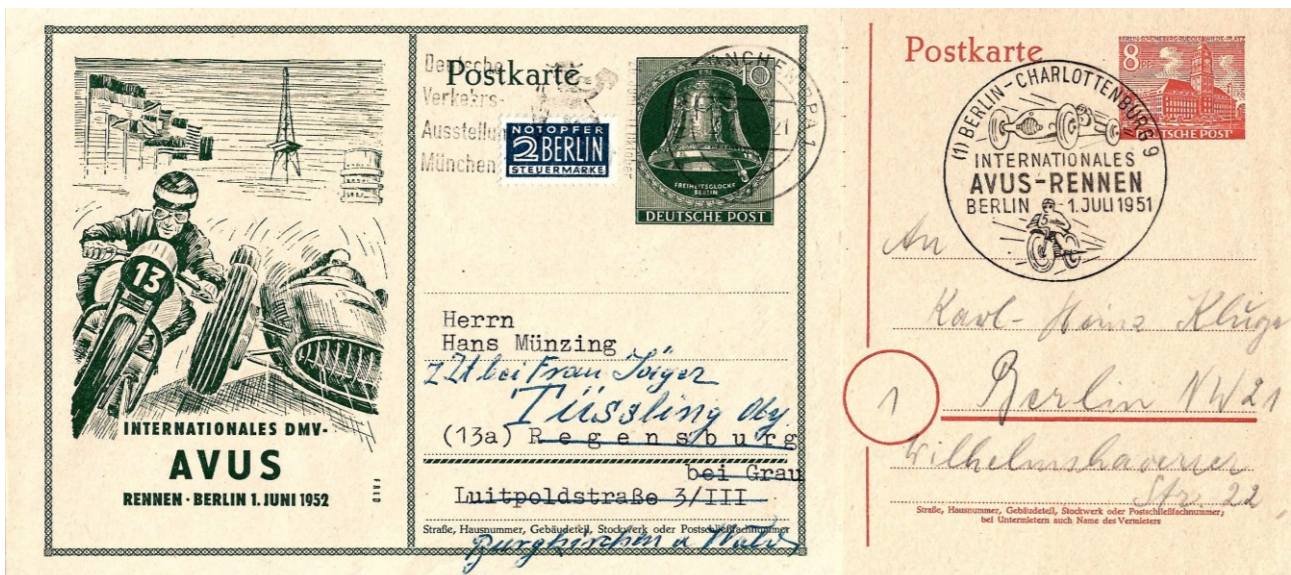 13
INTERNATIONALES DMV-
AVUS
RENNEN · BERLIN 1. JUNI 1952
Postkarte
Deutsche
Verkehrs-
Ausstellung
München
NOTOPFER
2 BERLIN
STEUERMARKE
10
FREIHEITSGLOCKE
BERLIN
DEUTSCHE POST
Herrn
Hans Münzing
z Zt bei Frau Jäger
Tüssling Oby
(13a) Regensburg
bei Grau
Luitpoldstraße 3/III
Straße, Hausnummer, Gebäudeteil, Stockwerk oder Postschließfachnummer
Burgkirchen a Wald
Postkarte
BERLIN-SCHÖNEBERG·RUDOLF-WILDE-PLATZ
8 PF
DEUTSCHE POST
(1) BERLIN-CHARLOTTENBURG 9
INTERNATIONALES
AVUS-RENNEN
BERLIN - 1. JULI 1951
An
Karl-Heinz Kluge
1
Berlin NW21
Wilhelmshavener
Str. 22
Straße, Hausnummer, Gebäudeteil, Stockwerk oder Postschließfachnummer;
bei Untermietern auch Name des Vermieters